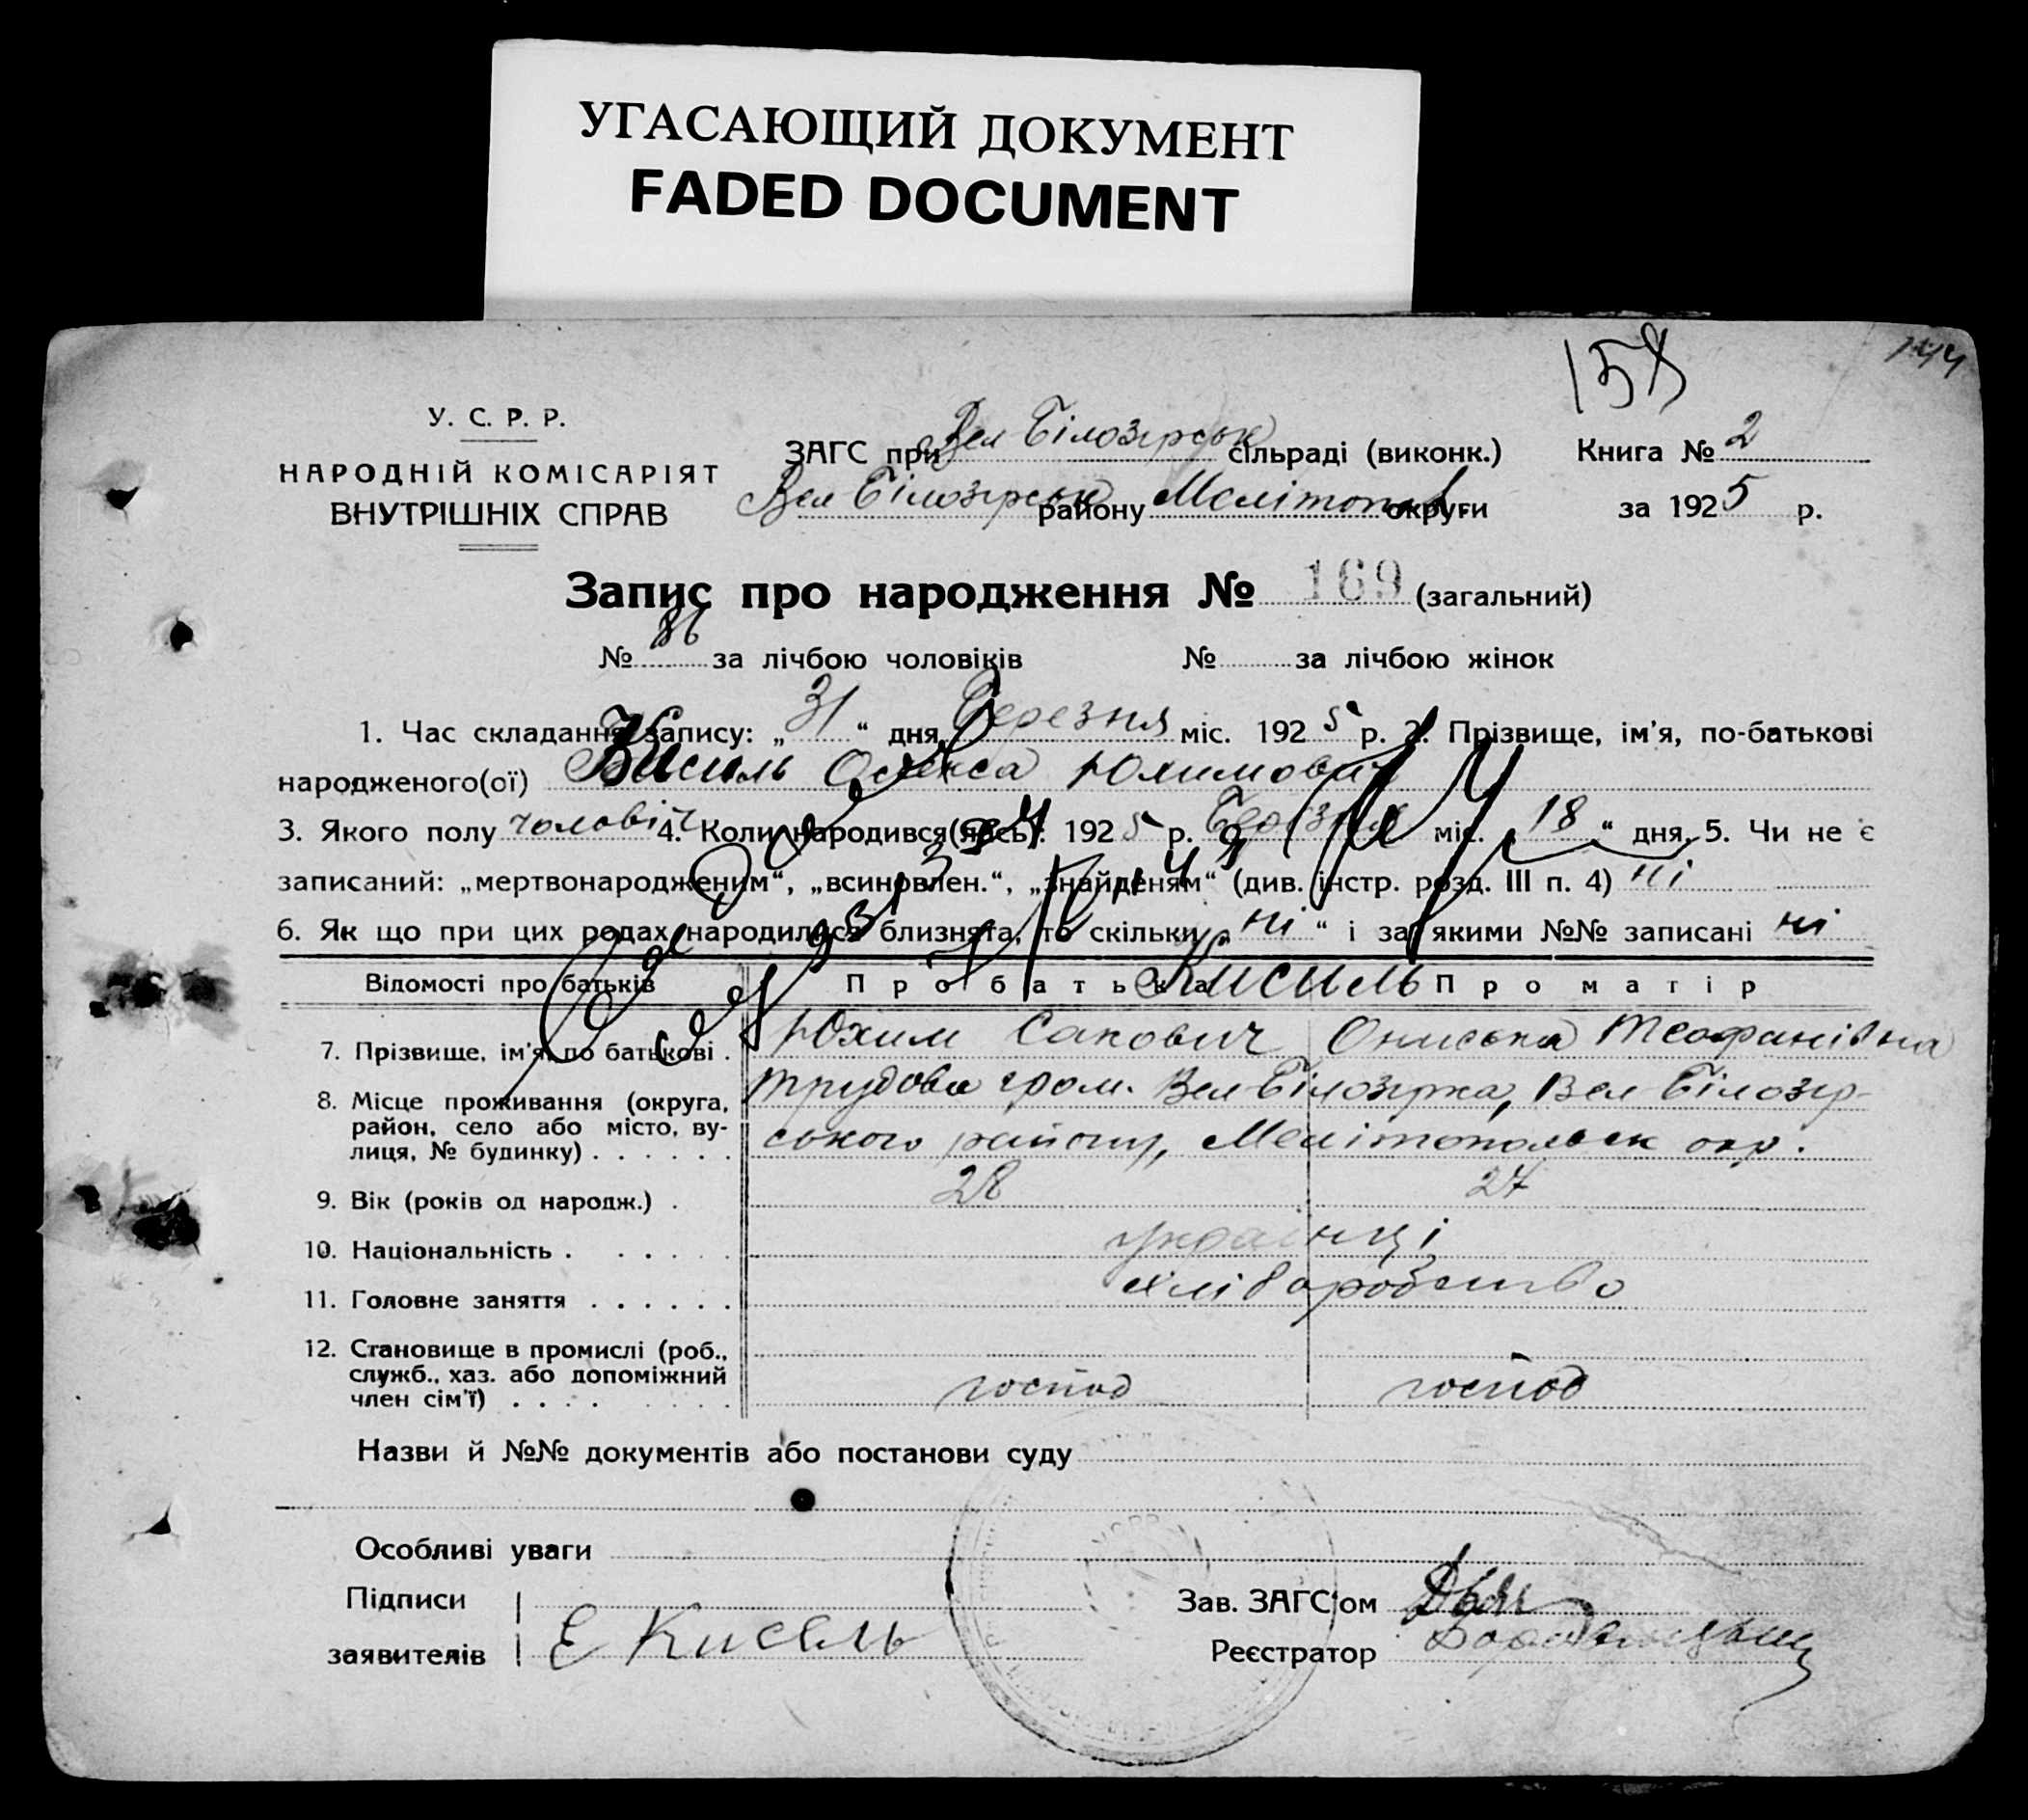 УГАСАЮЩИЙ ДОКУМЕНТ
FADED DOCUMENT
158
144
У. С. Р. Р.
НАРОДНІЙ КОМІСАРІЯТ
ВНУТРІШНІХ СПРАВ
ЗАГС при Вел Білозірськ сільраді (виконк.) Книга № 2
Вел Білозірськ району Мелітоп округи за 1925 р.
Запис про народження № 169 (загальний)
№ 86 за лічбою чоловіків № за лічбою жінок
1. Час складання запису: „31“ дня Березня міс. 1925 р. 2. Прізвище, ім'я, по-батькові
народженого(ої) Олекса Юхимович
3. Якого полу чоловіч 4. Коли народився(лась): 1925 р. Березня міс. „18“ дня. 5. Чи не є
записаний: „мертвонародженим“, „всиновлен.“, „знайденям“ (див. інстр. розд. III п. 4) ні
6. Як що при цих родах народилися близнята, то скільки „ні“ і за якими №№ записані ні
Відомості про батьків Про батька Кисиль Про матір
7. Прізвище, ім'я, по батькові . Юхим Сакович Ониська Теофанівна
8. Місце проживання (округа, район, село або місто, вулиця, № будинку) . . . . . . Трудова гром. Вел Білозірка, Вел Білозір-
ського району, Мелітопольск окр.
9. Вік (років од народж.) . 28 27
10. Національність . . . . . українці
11. Головне заняття . . . . . . хліборобство
12. Становище в промислі (роб., служб., хаз. або допоміжний член сім'ї) . . . . господ господ
Назви й №№ документів або постанови суду
Особливі уваги
Підписи
заявителів Е Кисель
Зав. ЗАГС'ом
Реєстратор